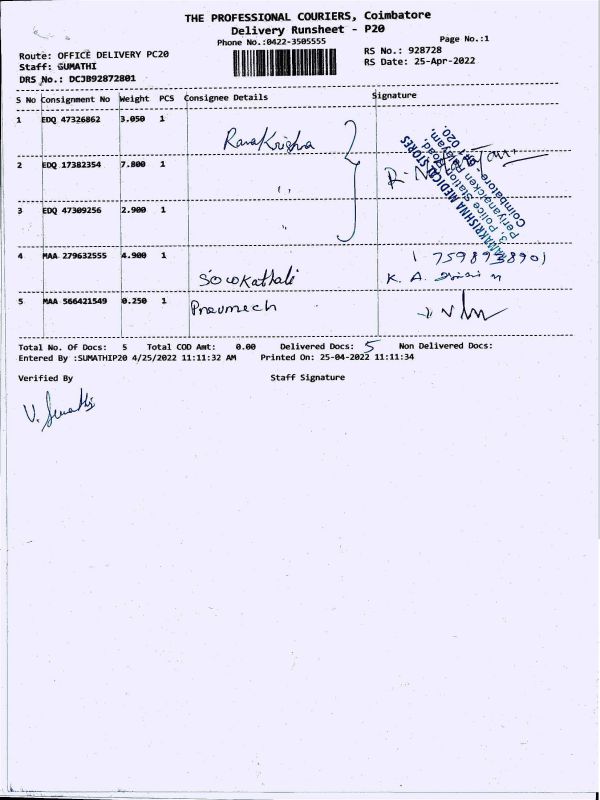 THE PROFESSIONAL COURIERS, Coimbatore
Delivery Runsheet - P20
Phone No.:0422-3505555
Page No.:1
Route: OFFICE DELIVERY PC20
RS No.: 928728
Staff: SUMATHI
RS Date: 25-Apr-2022
DRS No.: DCJB92872801
S No Consignment No Weight PCS Consignee Details Signature
1 EDQ 47326862 3.050 1 Ramakrishna
2 EDQ 17382354 7.800 1 ,,
3 EDQ 47309256 2.900 1 ,,
RAMAKRISHNA MEDICAL STORES
3, Police Station Road,
Periyanaicken Palayam,
Coimbatore - 641 020.
4 MAA 279632555 4.900 1
K. A.
5 MAA 566421549 0.250 1 Pneumech
Total No. Of Docs: 5 Total COD Amt: 0.00 Delivered Docs: 5 Non Delivered Docs:
Entered By :SUMATHIP20 4/25/2022 11:11:32 AM Printed On: 25-04-2022 11:11:34
Verified By Staff Signature
V. Sumathi